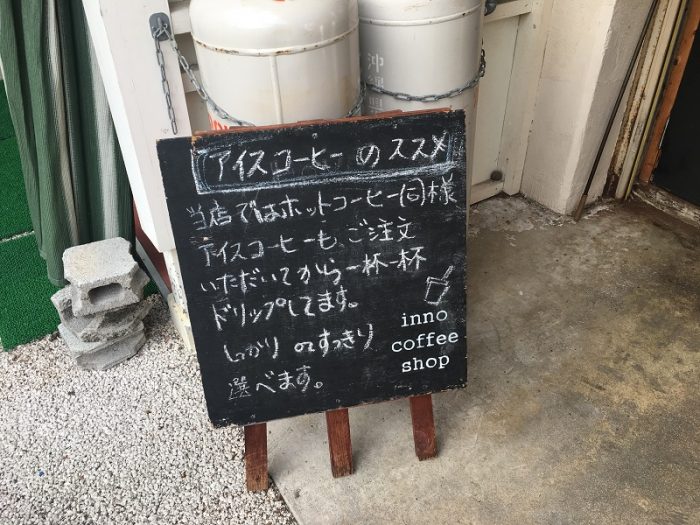 沖縄県
アイスコーヒーのススメ
当店ではホットコーヒー同様
アイスコーヒーも、ご注文
いただいてから一杯一杯
ドリップしてます。
しっかり orすっきり
選べます。
inno
coffee
shop